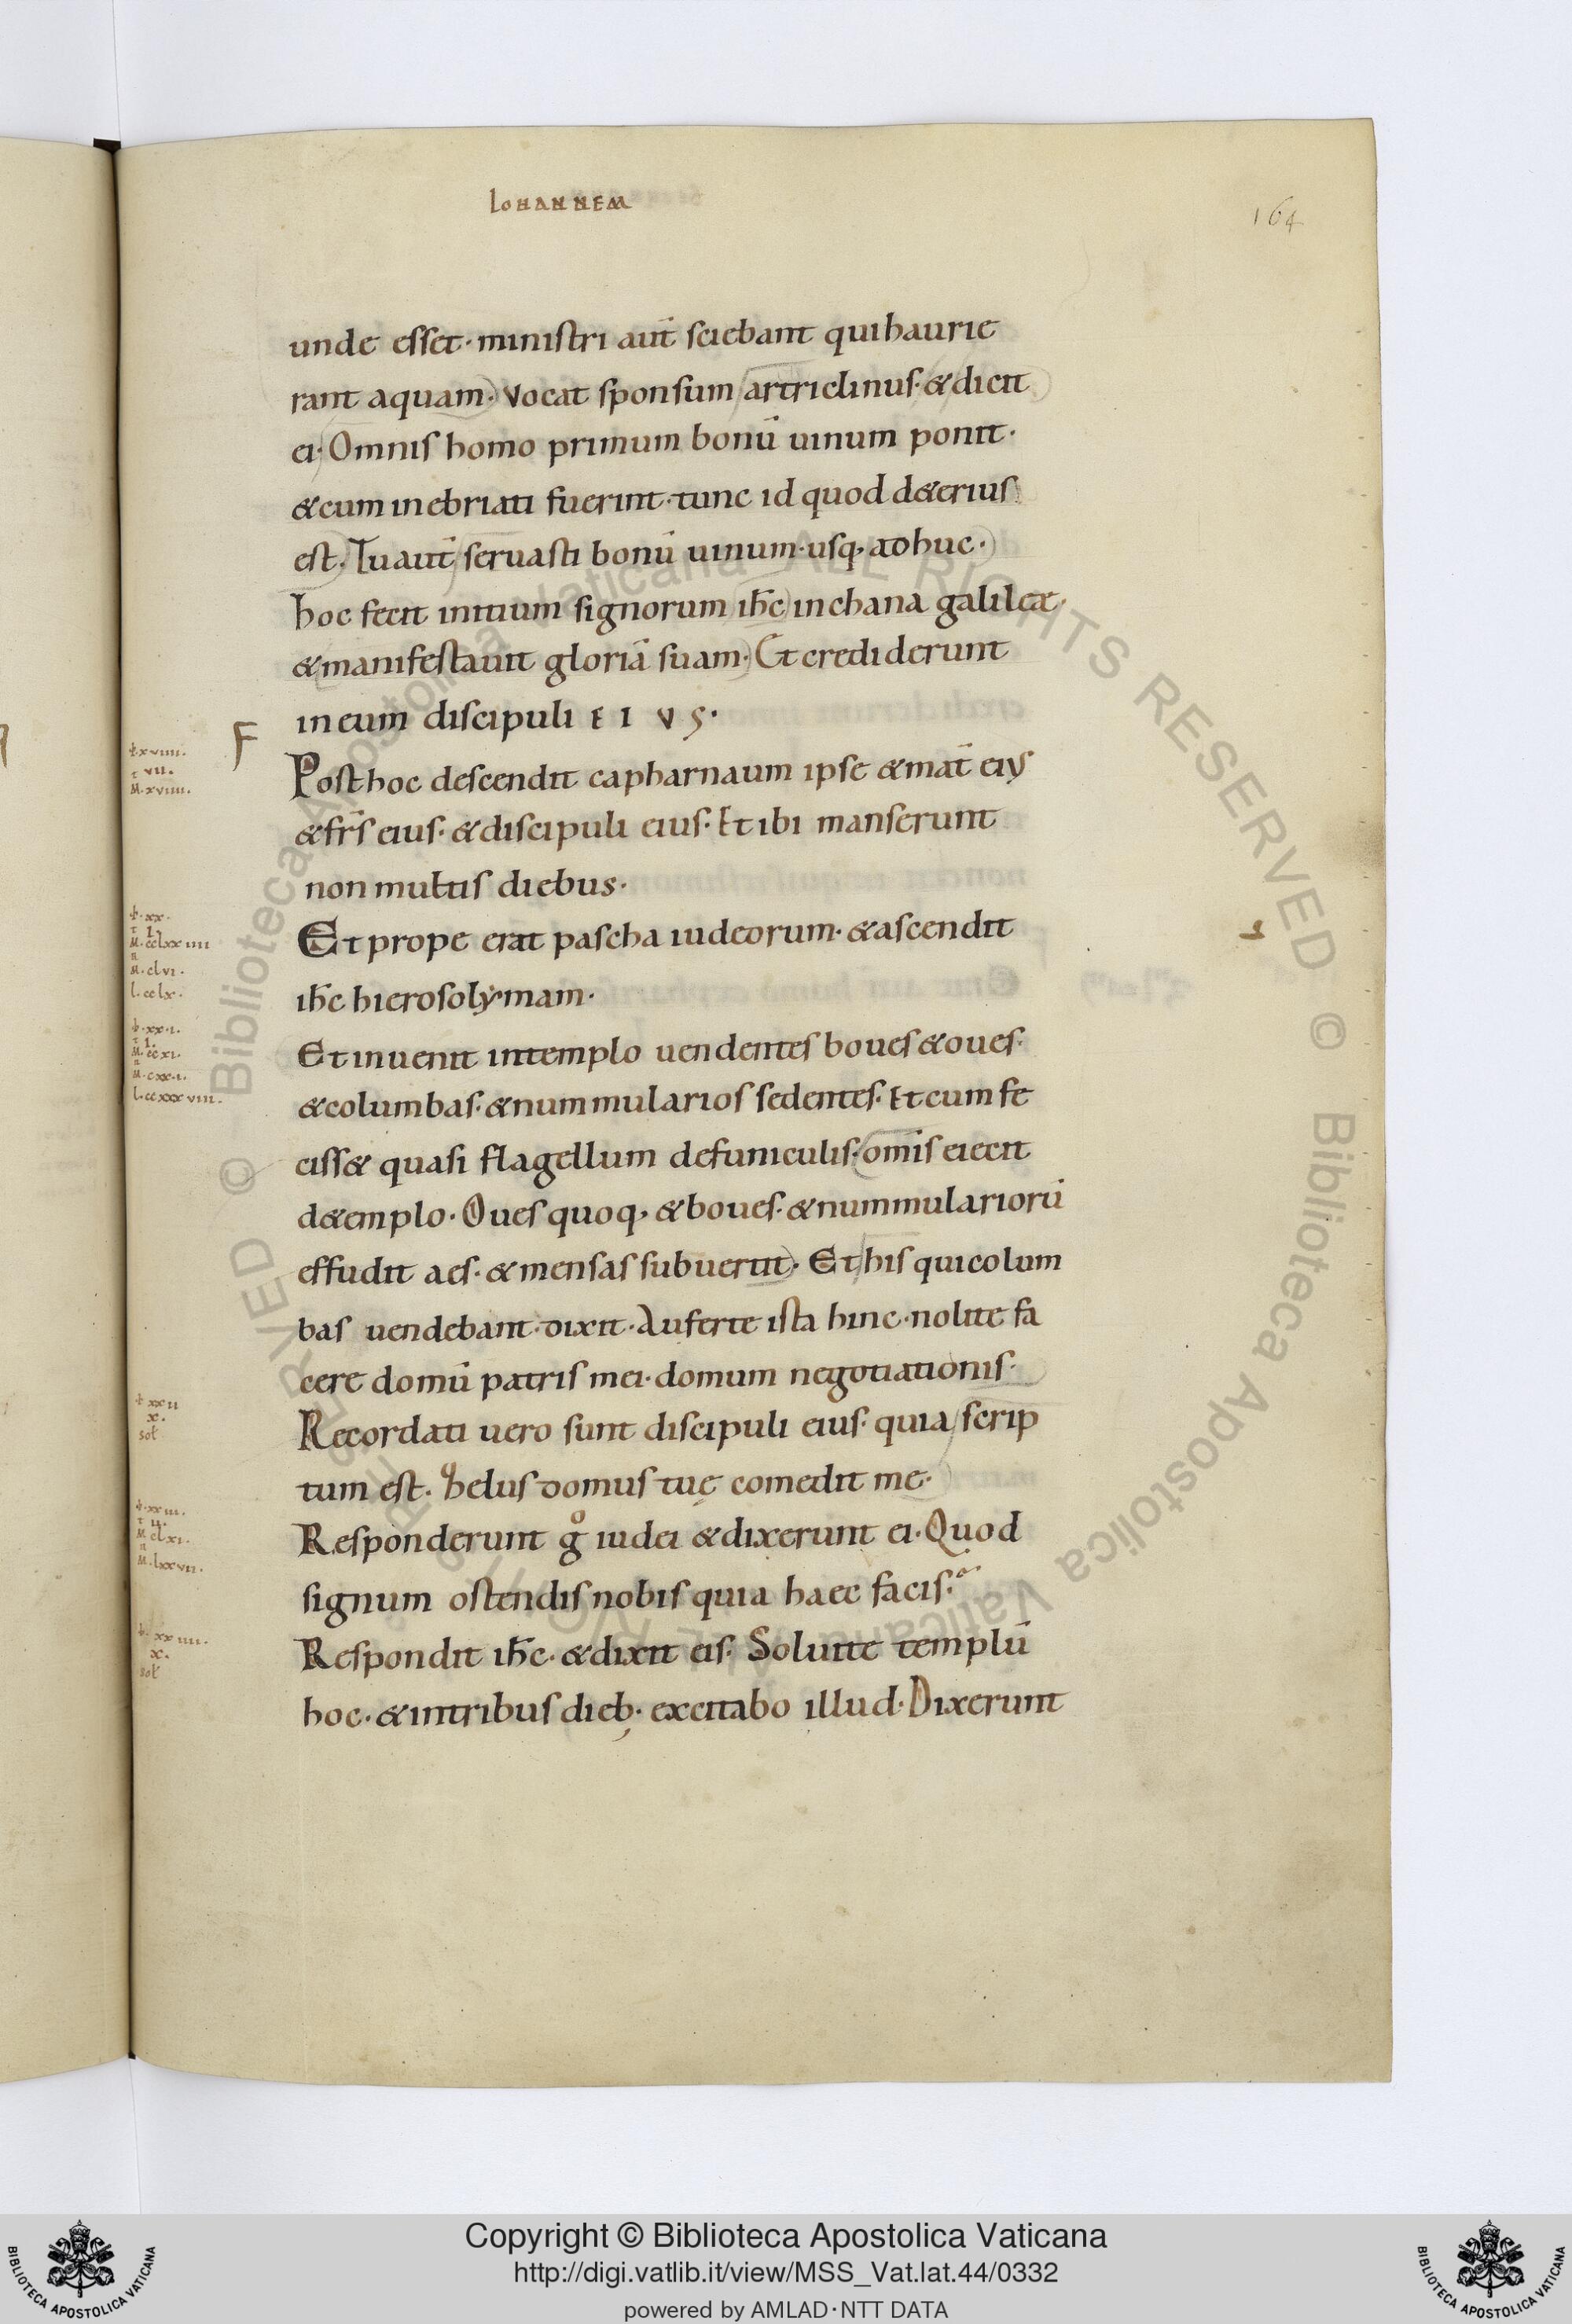 Iohannem
164
unde esset· ministri aut̄ sciebant qui haurie
rant aquam· Vocat sponsum artriclinus· & dicit
ei· Omnis homo primum bonū uinum ponit·
& cum inebriati fuerint· tunc id quod d&erius
est· Tu aut̄ seruasti bonū uinum· usq; adhuc·
hoc fecit initium signorum ih̄c in chana galileæ·
& manifestauit gloriā suam· Et crediderunt
in eum discipuli EIVS·
F
Post hoc descendit capharnaum ipse & mat̄ eius
& fr̄s eius· & discipuli eius· Et ibi manserunt
non multis diebus·
Et prope erat pascha iudeorum· & ascendit
ih̄c hierosolẏmam·
Et inuenit in templo uendentes boues & oues·
& columbas· & nummularios sedentes· Et cum fe
ciss& quasi flagellum de funiculis· om̄is eiecit
d&emplo· Oues quoq; & boues· & nummulariorū
effudit aes· & mensas subuertit· Et his qui colum
bas uendebant· dixit· Auferte ista hinc· nolite fa
cere domū patris mei· domum negotiationis·
Recordati uero sunt discipuli eius· quia scrip
tum est· Zelus domus tuę comedit me·
Responderunt gͦ iudei & dixerunt ei· Quod
signum ostendis nobis quia haec facis·
Respondit ih̄c· & dixit eis· Soluite templū
hoc· & in tribus dieb; excitabo illud· Dixerunt
xviiii·
vii·
M·xviiii·
xx·
i·
M·cclxxiiii
M·clvi·
l·cclx·
xxi·
i·
M·ccxi·
M·cxxi·
l·ccxxxviii·
xxii
x·
sol
xxiii·
ii·
M·clxi·
M·lxxvii·
xxiiii·
x·
sol
© Biblioteca Apostolica Vaticana ALL RIGHTS RESERVED © Biblioteca Apostolica Vaticana ALL RIGHTS RESERVED
BIBLIOTECA APOSTOLICA VATICANA
Copyright © Biblioteca Apostolica Vaticana
http://digi.vatlib.it/view/MSS_Vat.lat.44/0332
powered by AMLAD·NTT DATA
BIBLIOTECA APOSTOLICA VATICANA